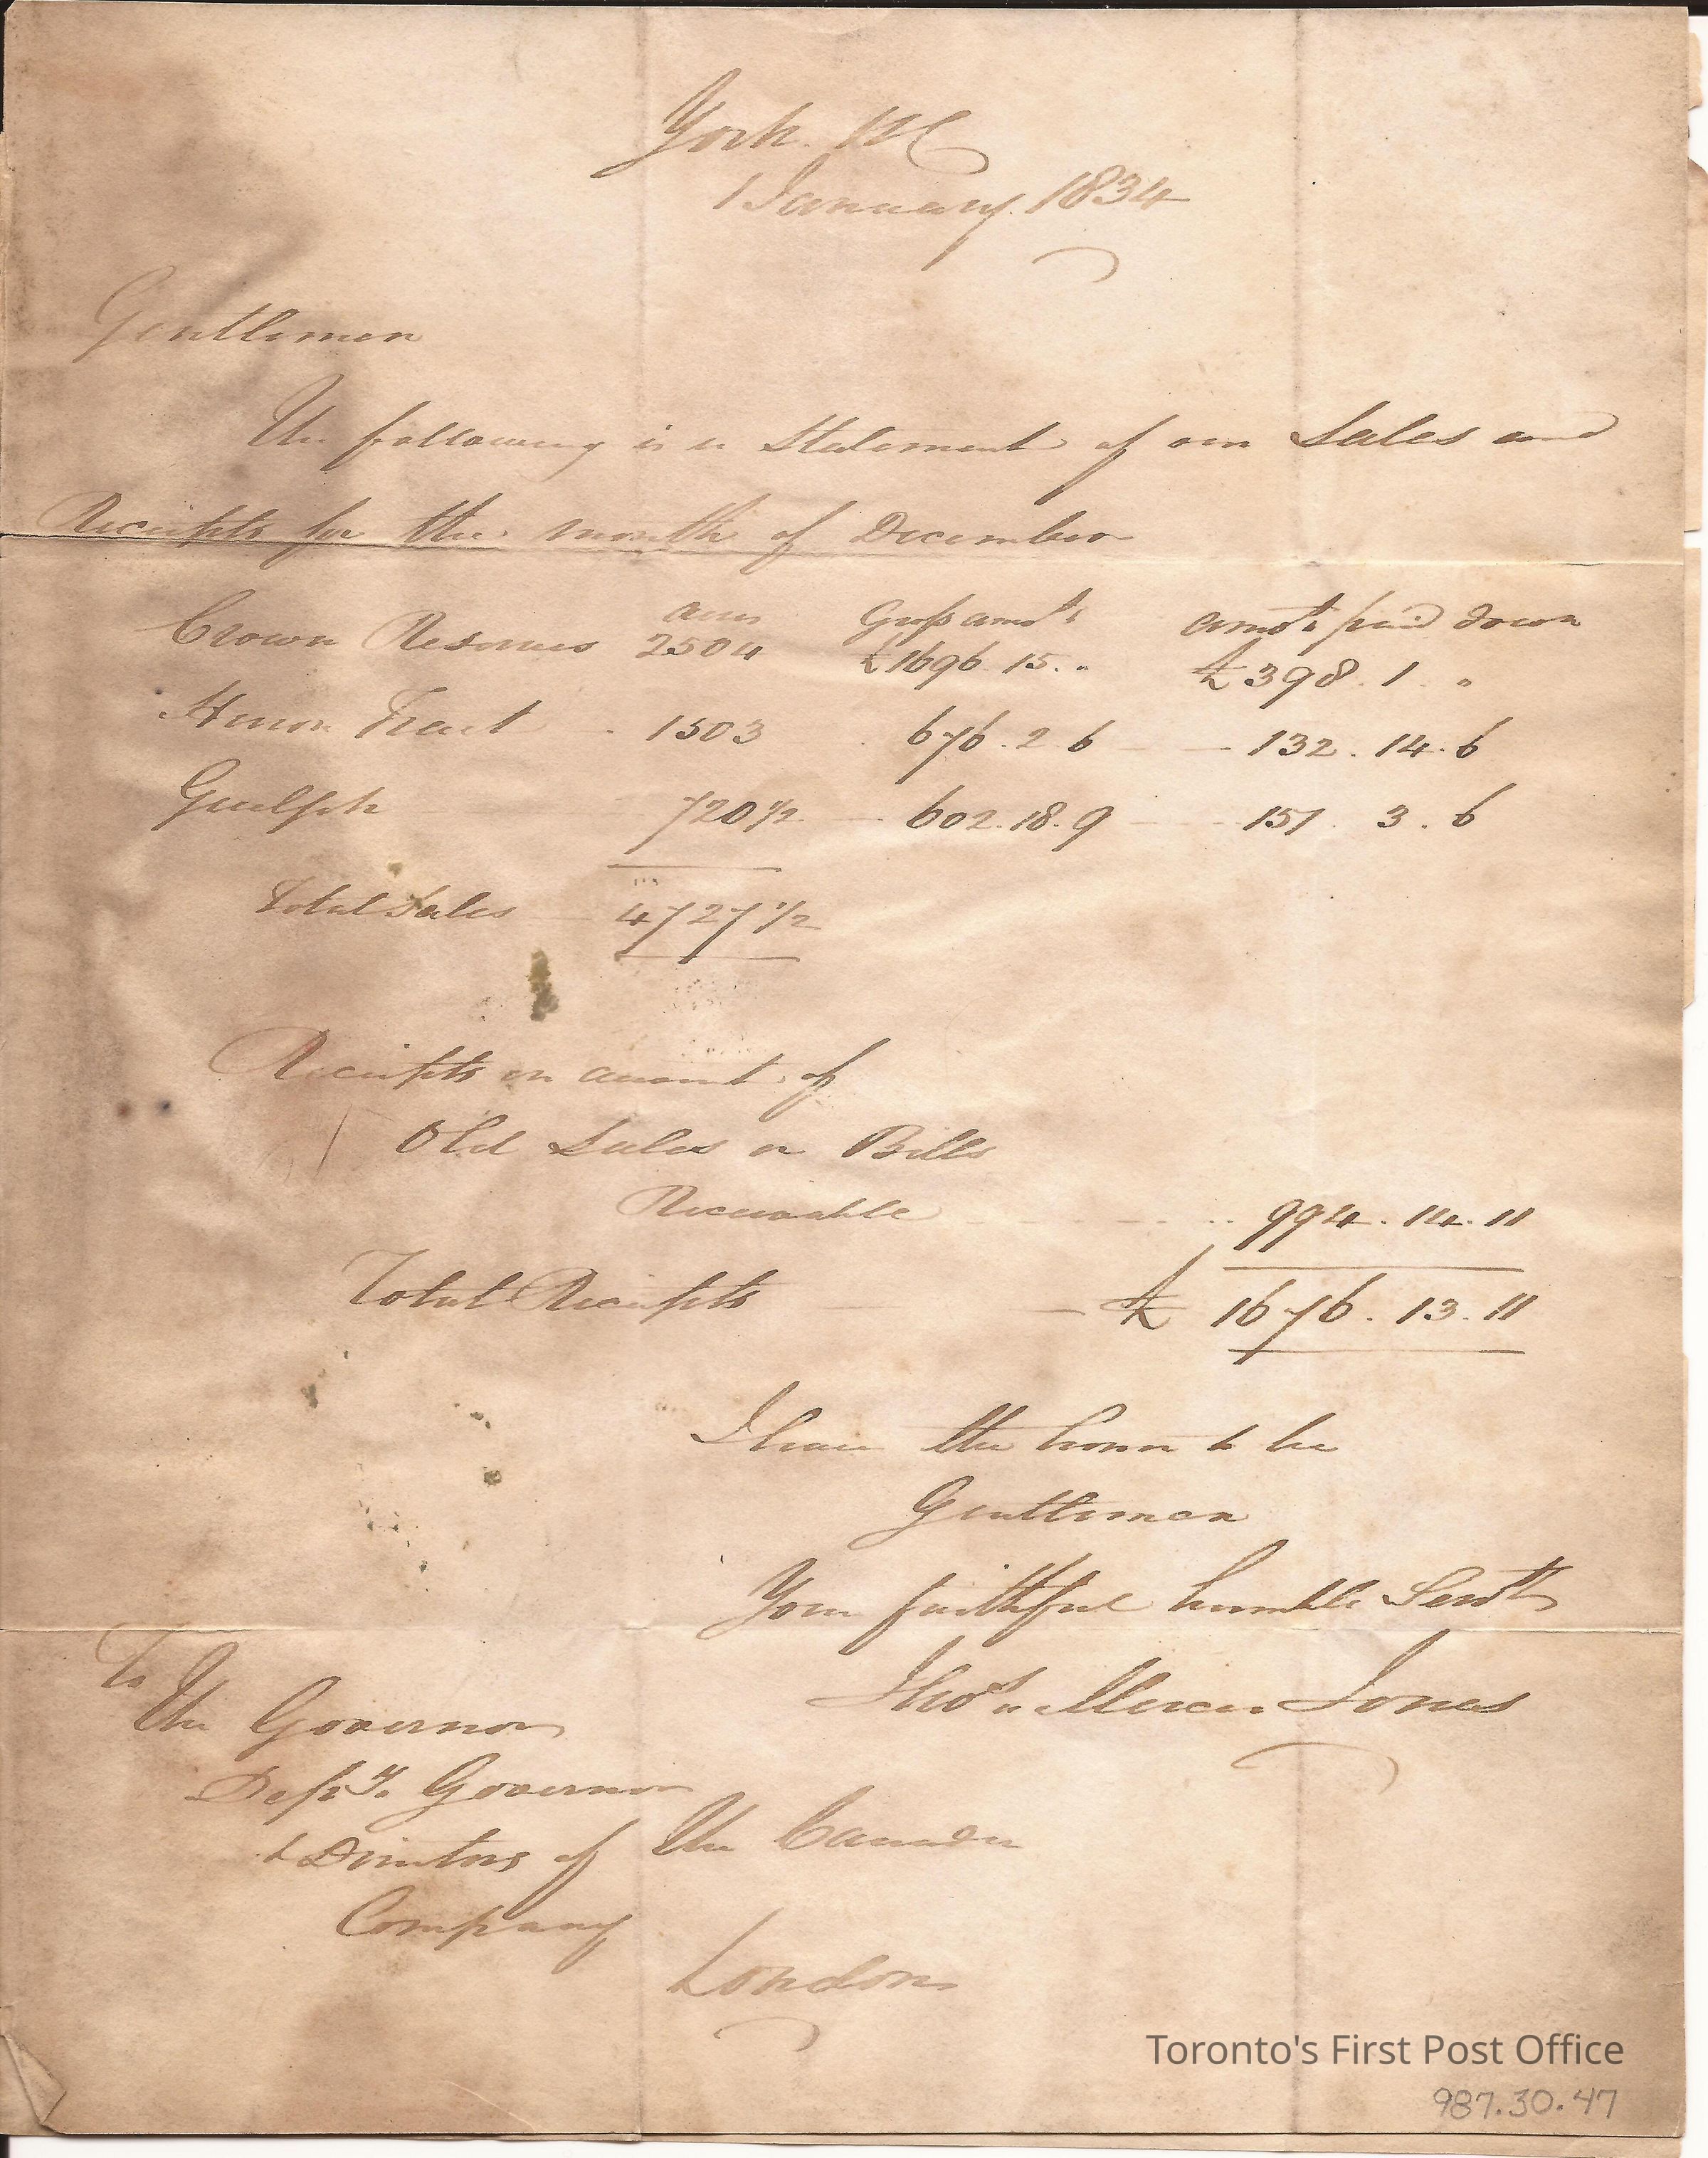 York. UC
1 January. 1834
Gentlemen
The following is a Statement of our Sales and
Receipts for the month of December
acres Gross amots amots paid down
Crown Reserves 2504 £1696. 15. " £398. 1. "
Huron Tract 1503 676. 2 6 132. 14. 6
Guelph 720 1/2 602. 18. 9 151. 3. 6
Total Sales 4727 1/2
Receipts on account of
Old Sales or Bills
Receivable 994. 14. 11
Total Receipts £ 1676. 13. 11
I have the honor to be
Gentlemen
Your faithful humble Servt
Thos. Mercer Jones
To
The Governor
Depy. Governor
& Directors of the Canada
Company
London
Toronto's First Post Office
987.30.47